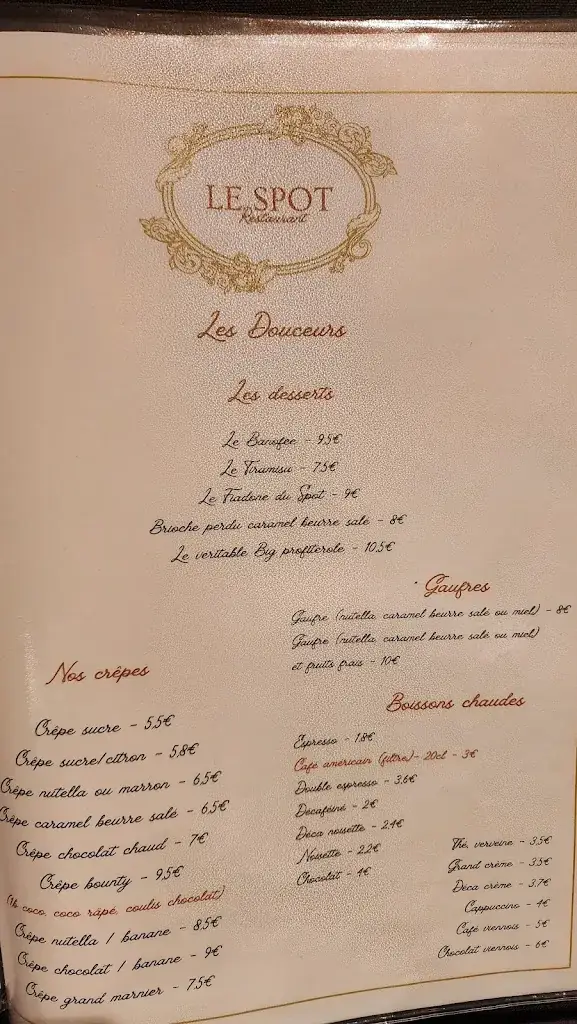 LE SPOT
Restaurant
Les Douceurs
Les desserts
Le Banofee - 9.5€
Le Tiramisu - 7.5€
Le Fiadone du Spot - 9€
Brioche perdu caramel beurre salé - 8€
Le veritable Big profiterole - 10.5€
Gaufres
Gaufre (nutella, caramel beurre salé ou miel) - 8€
Gaufre (nutella, caramel beurre salé ou miel)
et fruits frais - 10€
Nos crêpes
Crêpe sucre - 5.5€
Crêpe sucre/citron - 5.8€
Crêpe nutella ou marron - 6.5€
Crêpe caramel beurre salé - 6.5€
Crêpe chocolat chaud - 7€
Crêpe bounty - 9.5€
(1b coco, coco râpé, coulis chocolat)
Crêpe nutella / banane - 8.5€
Crêpe chocolat / banane - 9€
Crêpe grand marnier - 7.5€
Boissons chaudes
Espresso - 1.8€
Café américain (filtre) - 20cl - 3€
Double espresso - 3.6€
Décaféiné - 2€
Déca noisette - 2.4€
Noisette - 2.2€
Chocolat - 4€
Thé, verveine - 3.5€
Grand crème - 3.5€
Déca crème - 3.7€
Cappuccino - 4€
Café viennois - 5€
Chocolat viennois - 6€